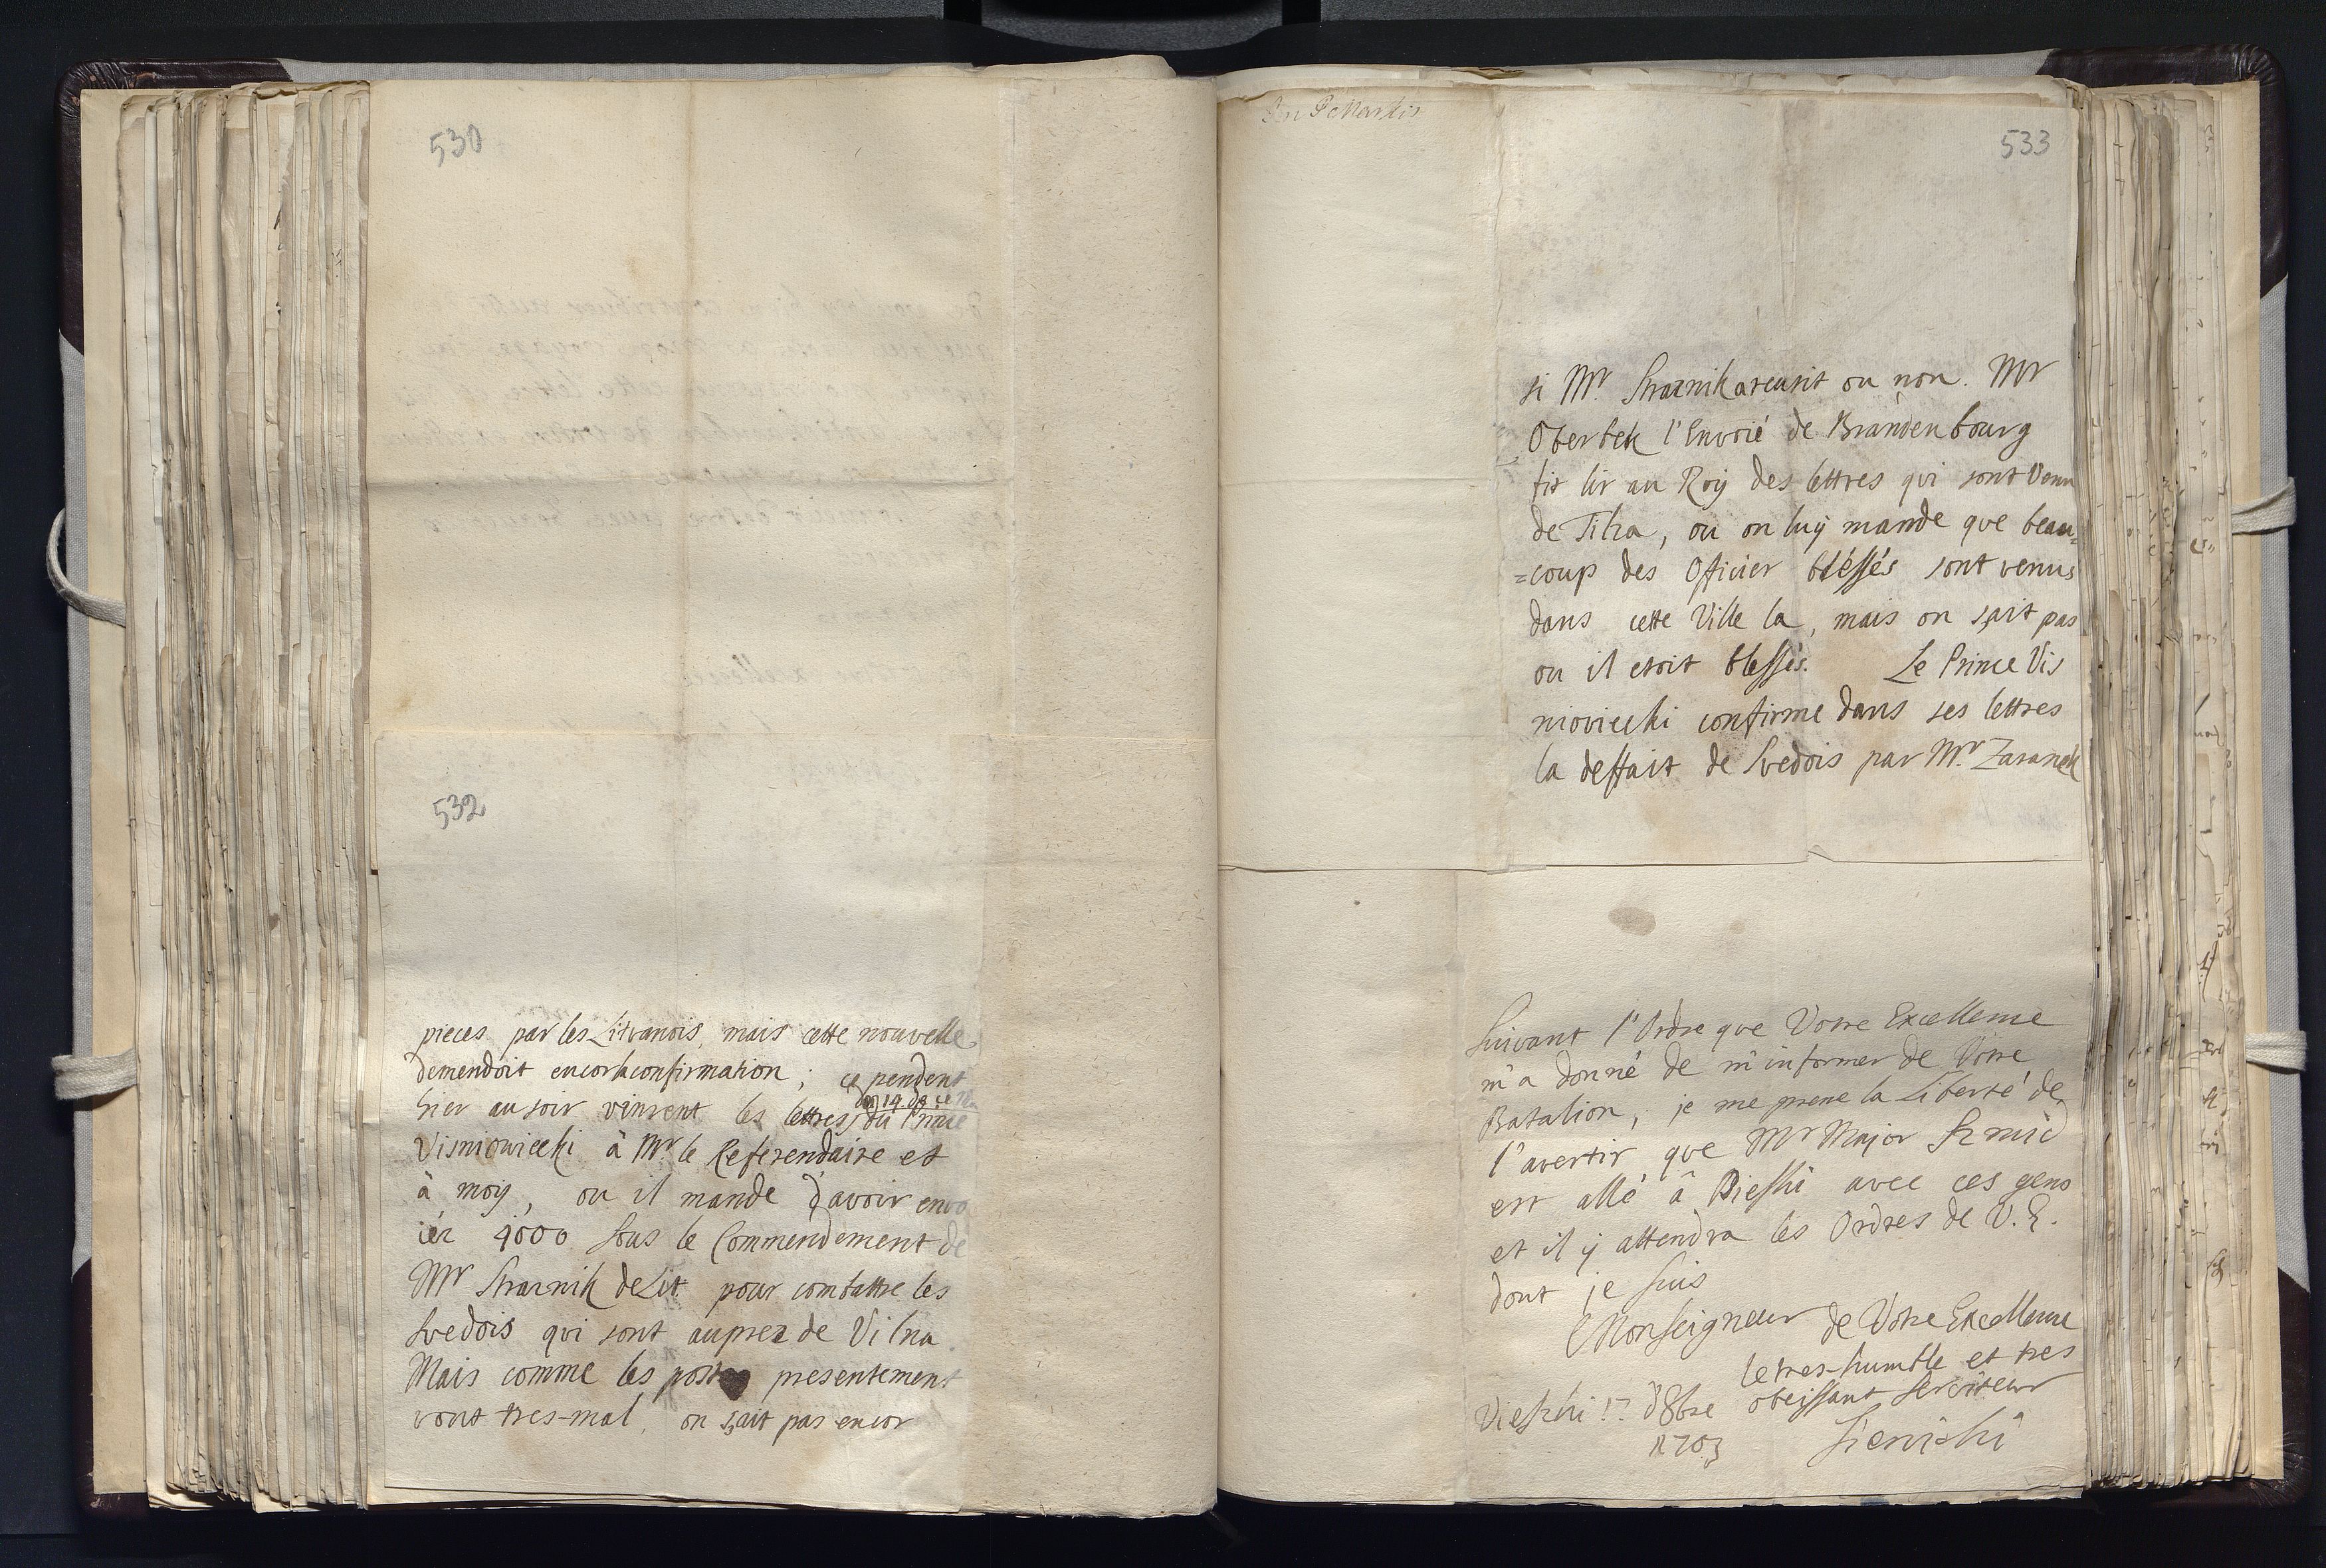 530
532
pieces par les Litvanois, mais cette nouvelle
demendoit encor la confirmation; ce pendent
hier au soir vinrent les lettres du 19 de ce du Prince
Visniowiecki à Mr. le Referendaire et
à moy, ou il mande d'avoir envo
iér 4000 sous le Commendement de
Mr Straznik de Lit. pour combattre les
Svedois qui sont auprez de Vilna.
Mais comme les post presentement
vont tres-mal, on sçait pas encor
533
si Mr. Straznik a reusit ou non. Mr
Oberbek l'Envoié de Brandenbourg
fit lir au Roy des lettres qui sont venu
de Tilza, ou on luy mande que beau=
=coup des Officier bléssés sont venus
dans cette Ville la, mais on sçait pas
ou il etoit blessés. Le Prince Vis
nioviecki confirme dans ses lettres
la deffait de Svedois par Mr. Zaranek
Suivant l'Ordre que Votre Excellence
m'a donné de m'informer de Votre
Batalion, je me prene la Liberté de
l'avertir, que Mr Major Szmid
est allé â Pieski avec ces gens
et il y attendra les Ordres de V. E.
dont je suis
Monseigneur de Votre Excellence
le tres-humble et tres
obeissant serviteur
d'8bre
1703